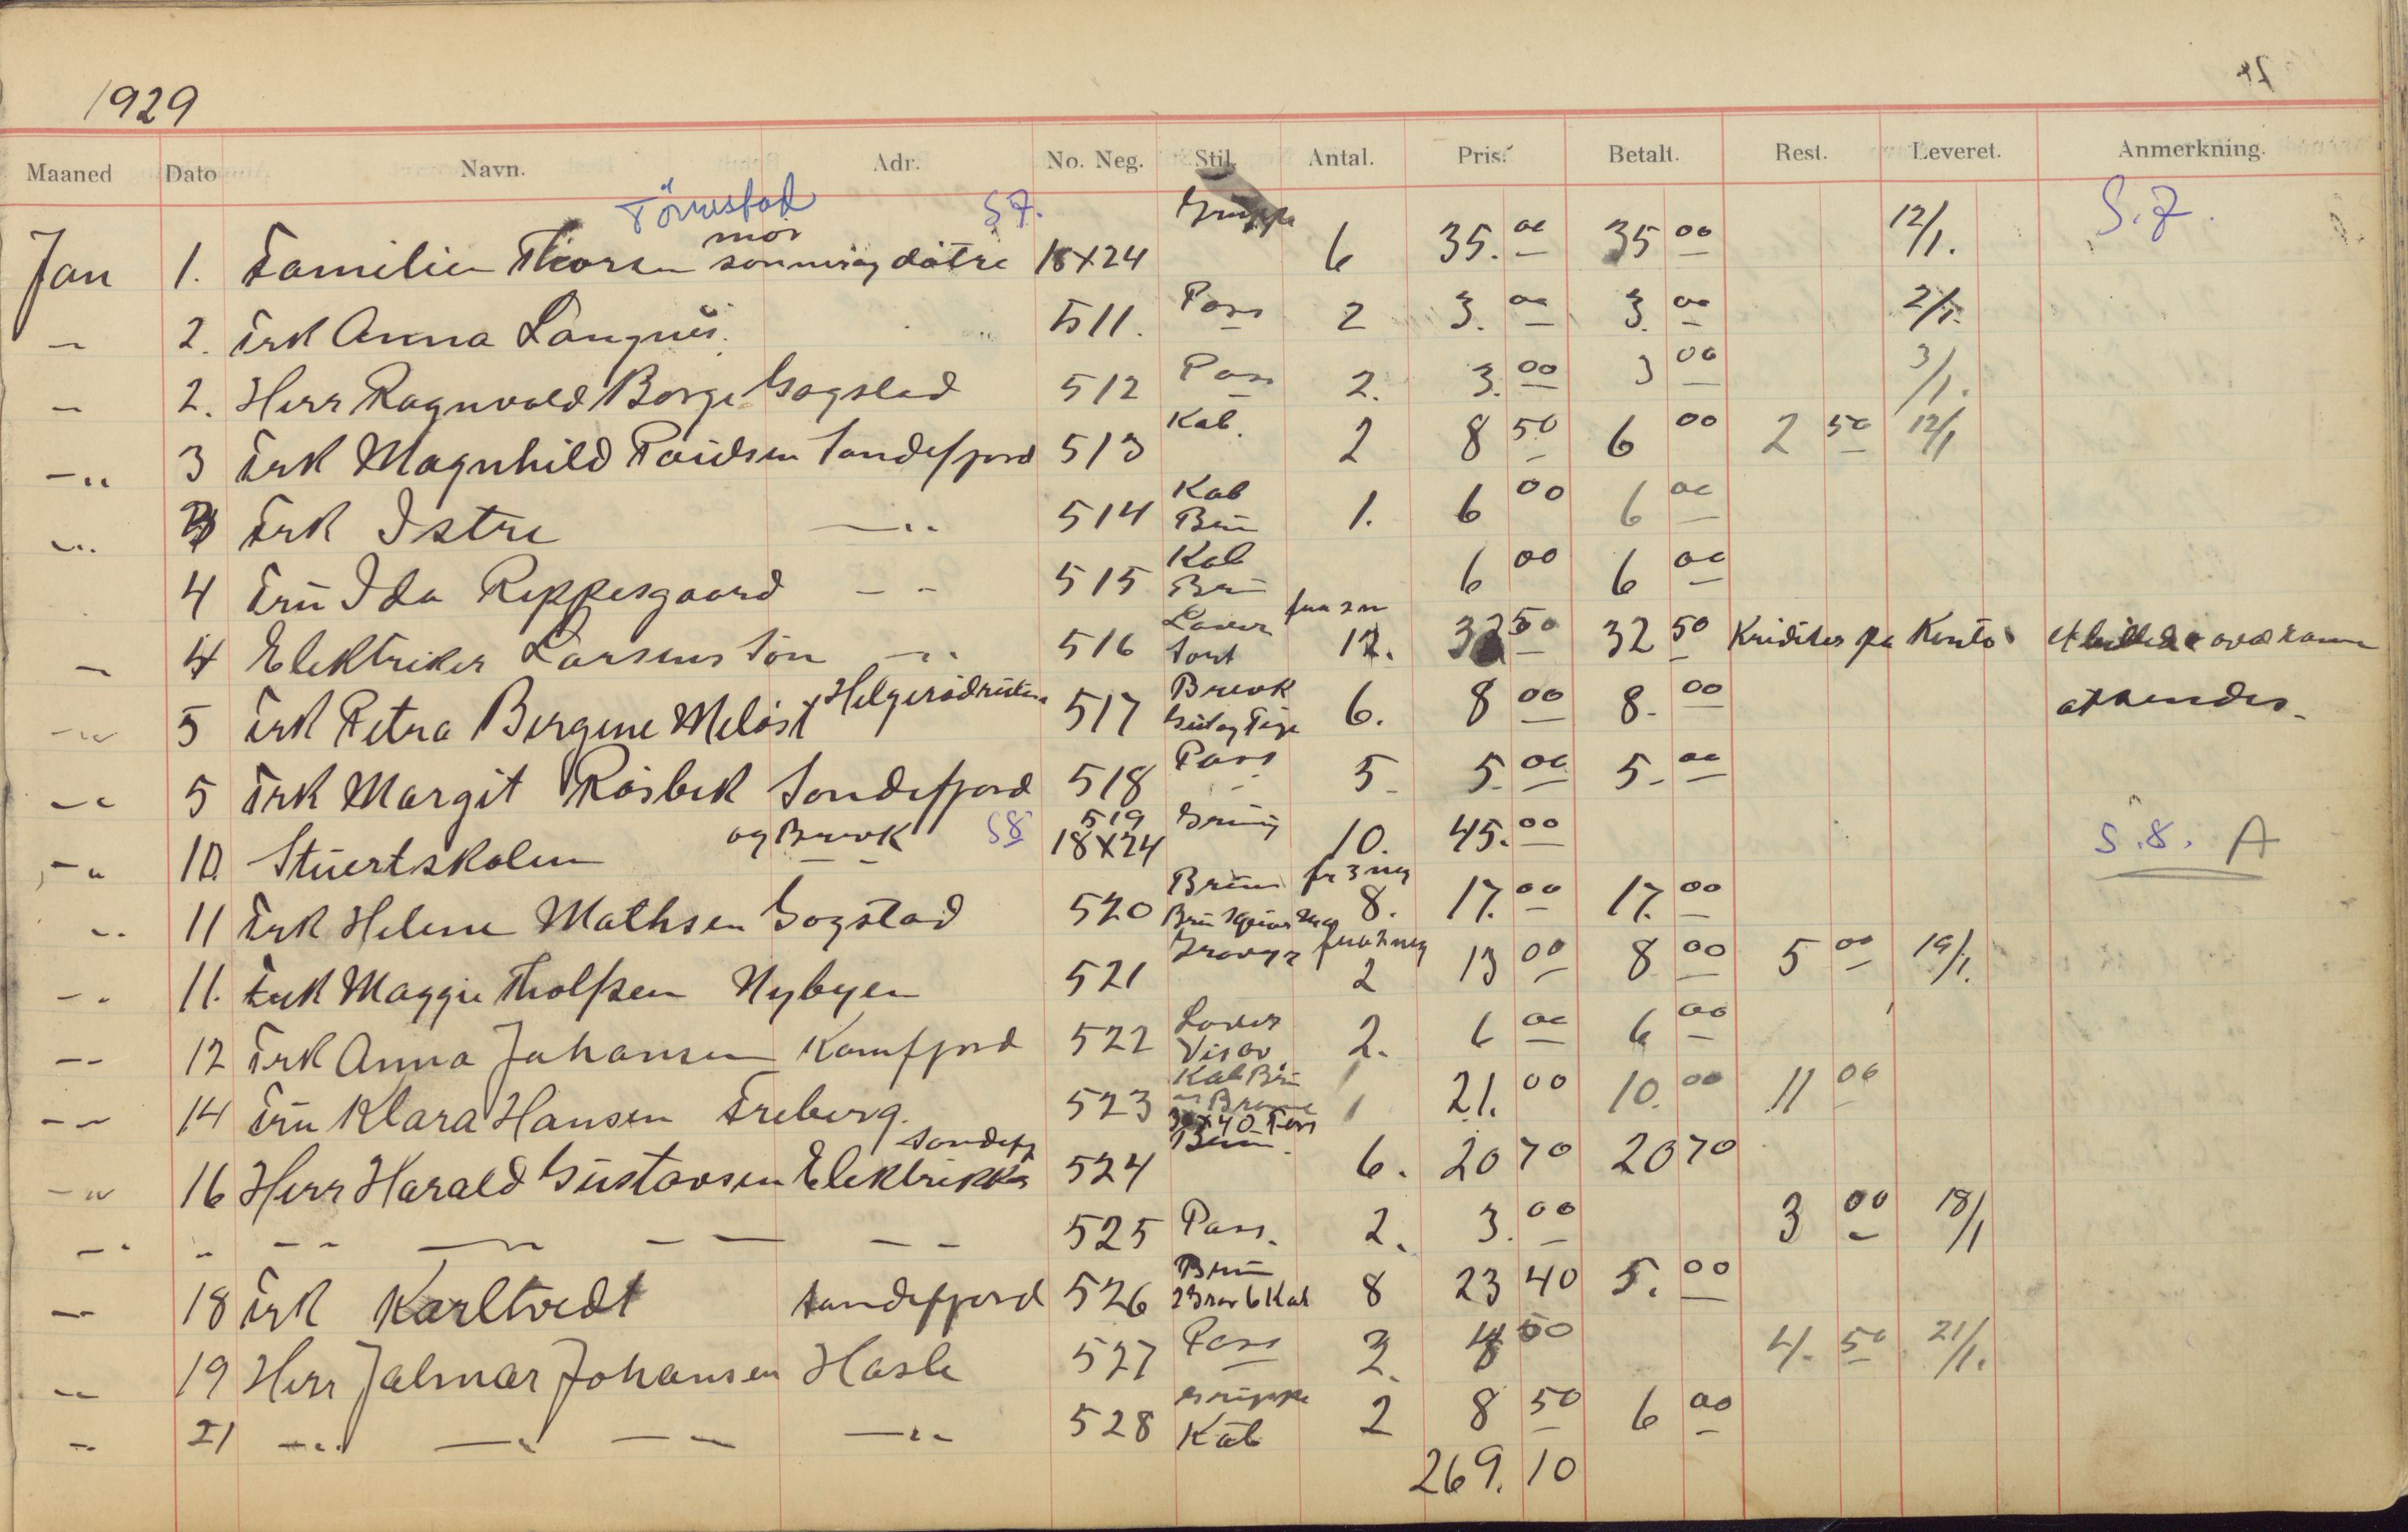 1929
Maaned Dato Navn. Adr. No. Neg. Stil. Antal. Pris. Betalt. Rest. Leveret. Anmerkning.
Törnestad S7. Gruppe S.7.
mor
Jan 1. Familien Thorsen 18X24 6 35.00 35 00 12/1.
— 2. Frk Anna Langnes. 511. Pass 2 3.00 3.00 2/1.
— 2. Herr Ragnvald Borge Gogstad 512 Pass 2. 3.00 3 00 3/1.
—" 3 Frk Magnhild Paulsen Sandefjord 513 Kab. 2 8 50 6 00 2 50 12/1
—" 3 Frk Istre —" 514 Kab Brun 1. 6 00 6 00
4 Fru Ida Reppesgaard — - 515 Kab Brun 6 00 6 00
— 4 Elektriker Larsens Sön —" 516 Sort 12. 32 50 32 50 Krediter pa Konto
—" 5 Frk Petra Bergene Melöst 517 Brevk 6. 8 00 8.00
—" 5 Frk Margit Råsbek Sandefjord 518 Pass 5 5.00 5.00
—" 10. Stuertskolen og Brevk S8 519 18X24 10. 45.00 S.8. A
—" 11 Frk Helene Mathsen Gogstad 520 8. 17.00 17.00
—" 11. Frk Maggie Tholfsen Nybyen 521 2 13 00 8 00 5 00 19/1.
— — 12 Frk Anna Johansen Kamfjord 522 Visav. 2. 6 00 6 00
— — 14 Fru Klara Hansen Freberg. 523 Kab Brun 1 21.00 10.00 11 00
30x40
—" 16 Herr Harald Gustavsen Elektrikker Sandefj 524 Brun. 6. 20 70 20 70
—" " — — — — 525 Pass. 2. 3.00 3 00 18/1
— 18 Frk Karltvedt Sandefjord 526 Brun 6 Kab 8 23 40 5.00
— 19 Herr Jalmar Johansen Hasle 527 Pass 3. 4 50 4. 50 21/1.
— 21 —" — — —" 528 Gruppe Kab 2 8 50 6 00
269.10